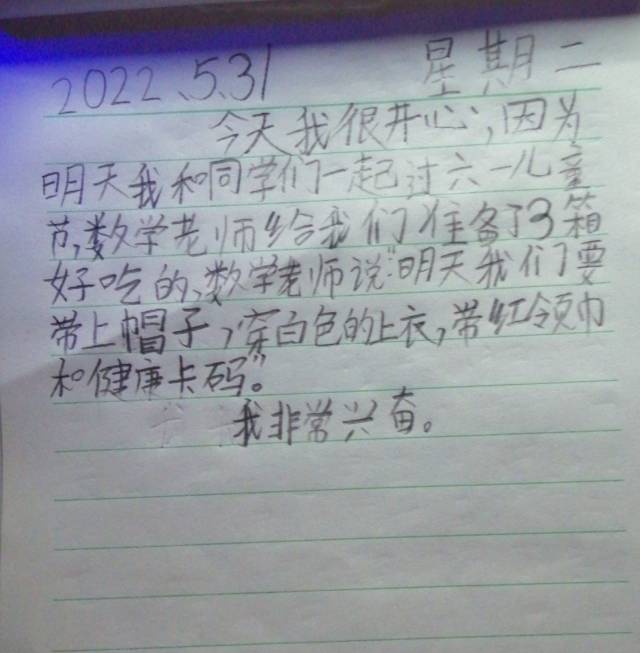 2022、5.31 星期二
今天我很开心,因为
明天我和同学们一起过六一儿童
节,数学老师给我们准备了3箱
好吃的,数学老师说:“明天我们要
带上帽子,穿白色的上衣,带红领巾
和健康卡码”。
我非常兴奋。